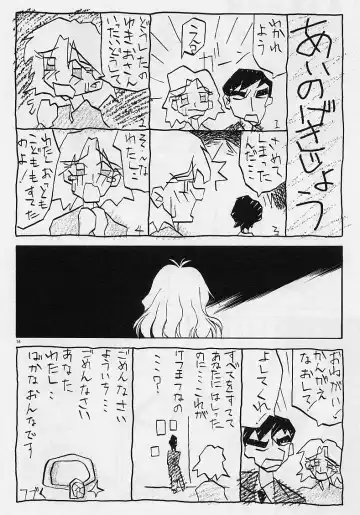 あいのごさじょう
わかれ
よう
えっ?
1
どうしたの
ゆきおさん
いったいどうして
さめて
しまった
んだ…
3
そ〜んな
わたし…
わたしおっとも
こどももすてた
のよ!
4
おねがい!
かんがえ
なおして!
よしてくれ
すべてをすてて
あなたにはしった
のに…これが
けつまつなの
…?
ごめんなさい
ようい…
ごめんなさい
わたし…
あなた
ばかなおんなです